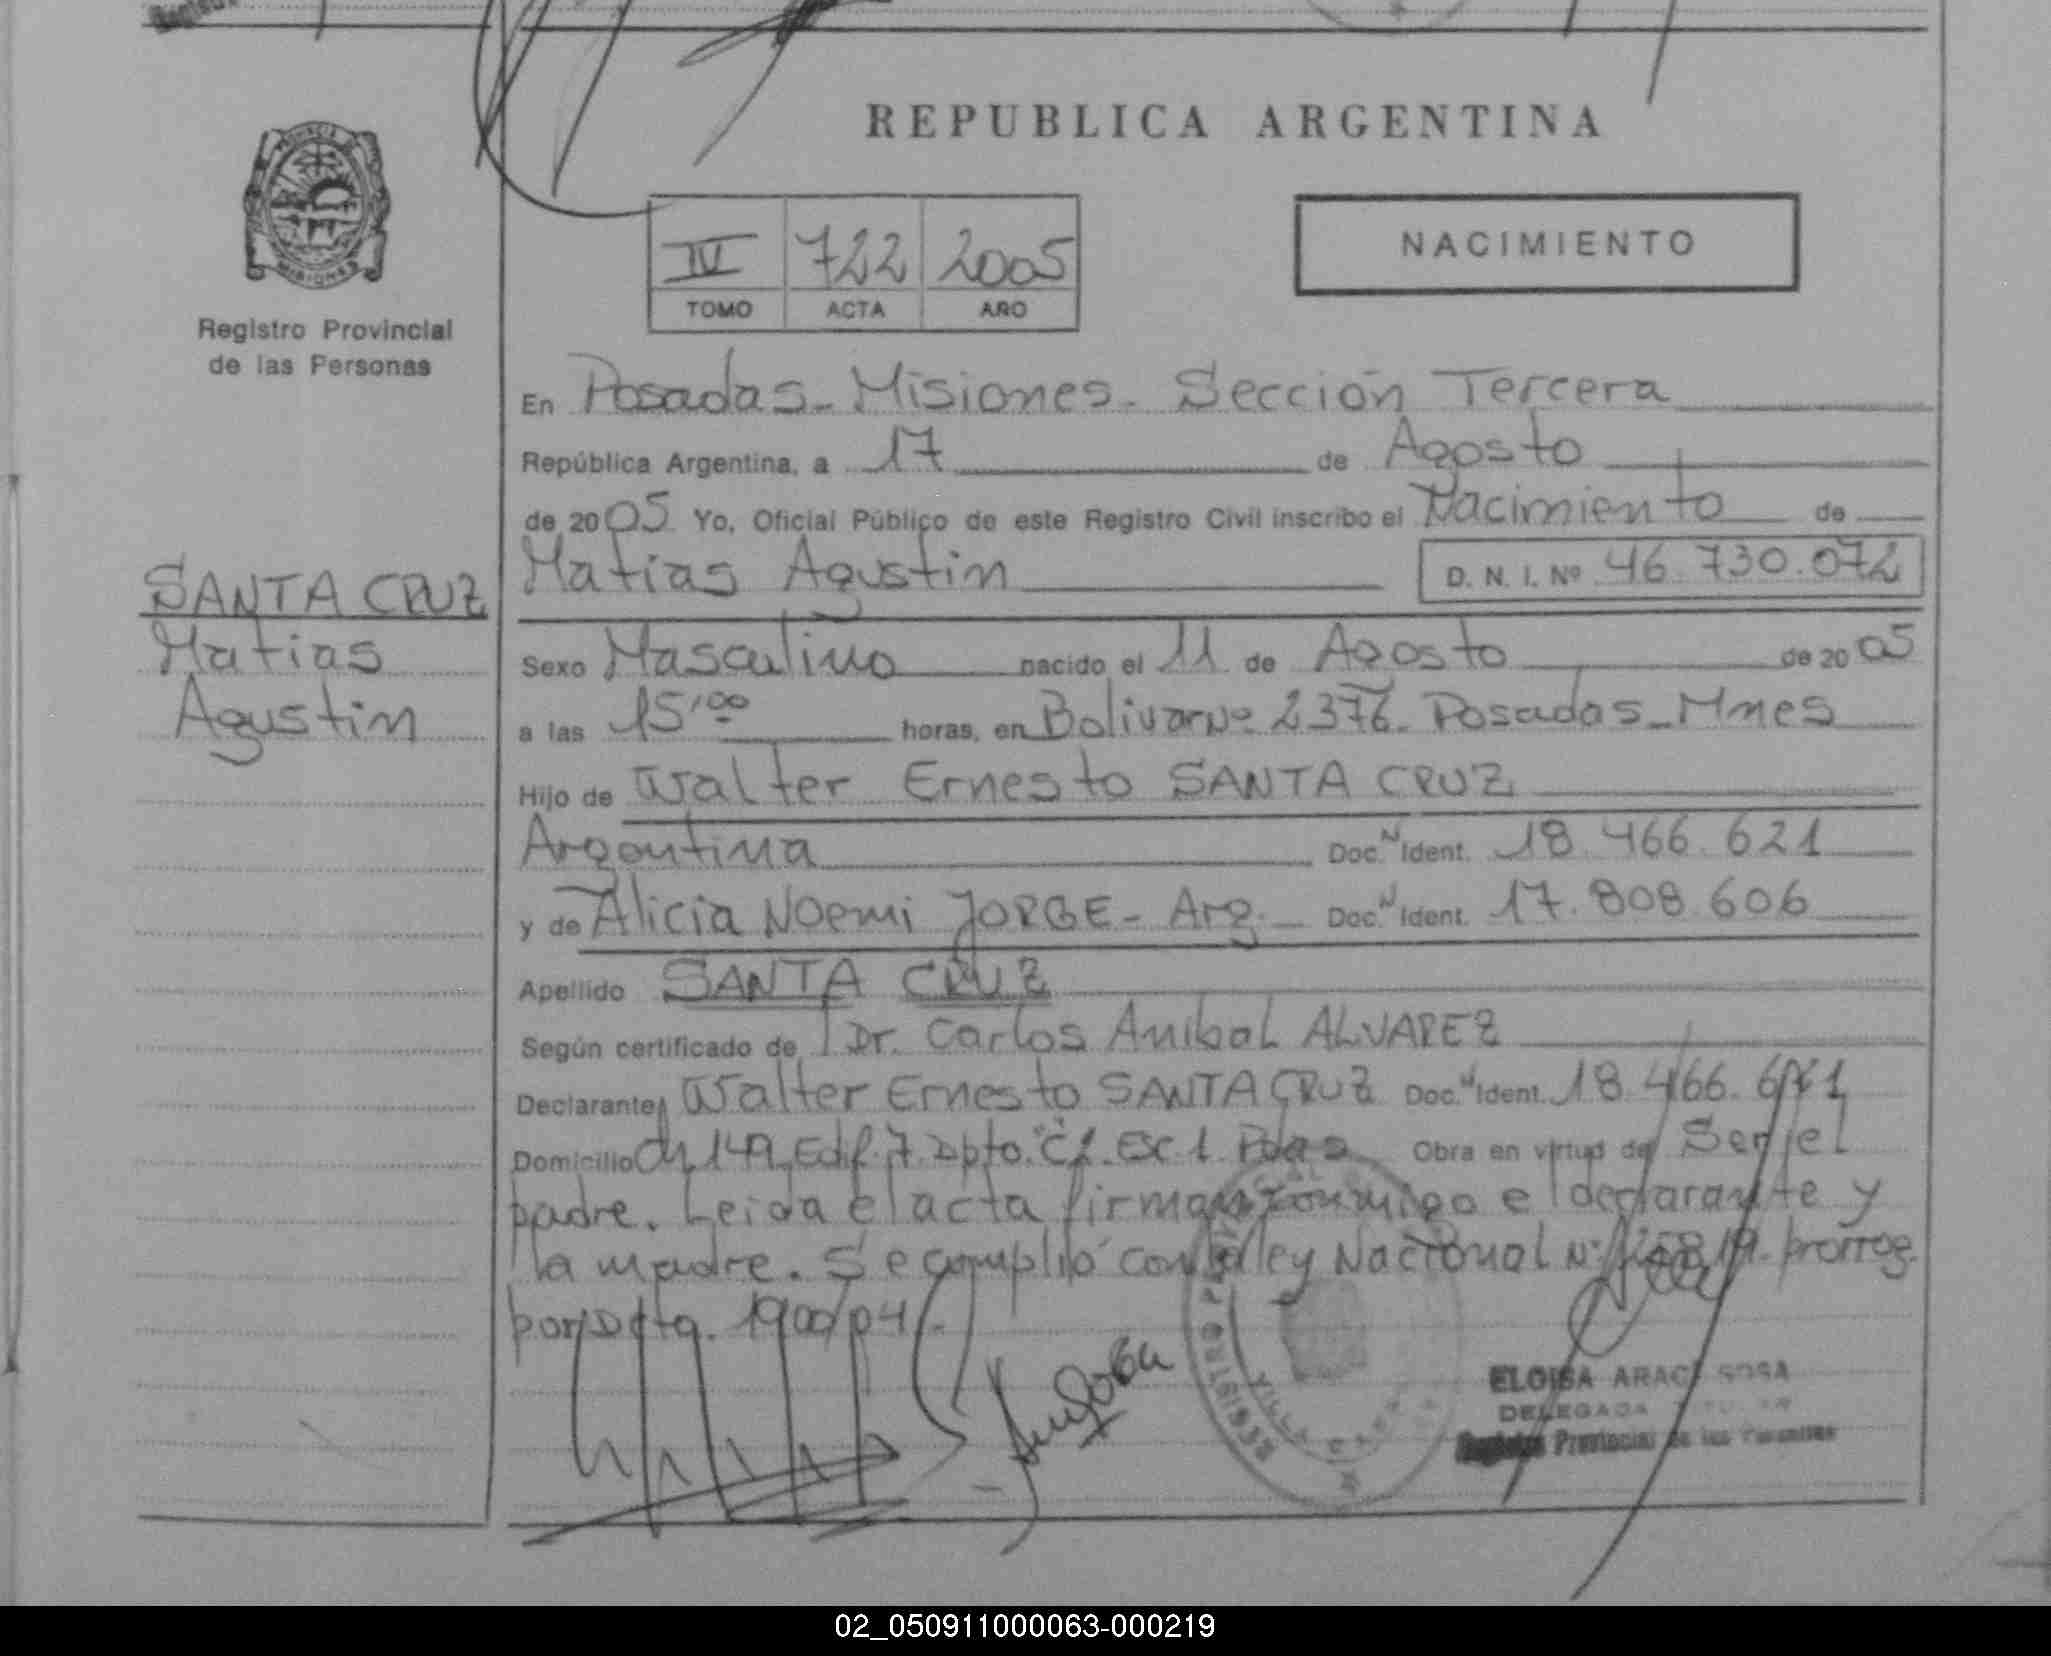 REPUBLICA ARGENTINA
PROVINCIA DE
MISIONES
Registro Provincial
de las Personas
IV 722 2005
TOMO ACTA AÑO
NACIMIENTO
En Posadas - Misiones - Sección Tercera
República Argentina, a 17 de Agosto
de 2005 Yo, Oficial Público de este Registro Civil inscribo el Nacimiento de
Matias Agustin D. N. I. Nº 46.730.072
SANTA CRUZ
Matias
Agustin
Sexo Masculino nacido el 11 de Agosto de 2005
a las 15,00 horas, en Bolivar Nº 2376 - Posadas - Mnes
Hijo de Walter Ernesto SANTA CRUZ
Argentina Doc. N Ident. 18.466.621
y de Alicia Noemi JORGE - Arg. Doc. N Ident. 17.808.606
Apellido SANTA CRUZ
Según certificado de Dr. Carlos Anibal ALVAREZ
Declarante Walter Ernesto SANTA CRUZ Doc. N Ident. 18.466.621
Domicilio Ch 149 Edif. 7 Dpto. Esc. 1 Pdas Obra en virtud de Ser el
padre. Leida el acta firman conmigo el declarante y
la madre. Se cumplió con la ley Nacional Nº prorrog.
por Dcto. 1900/04.
REGISTRO PROVINCIAL
VILLA
ELOISA ARACI SOSA
DELEGADA TITULAR
Registro Provincial de las Personas
02_050911000063-000219